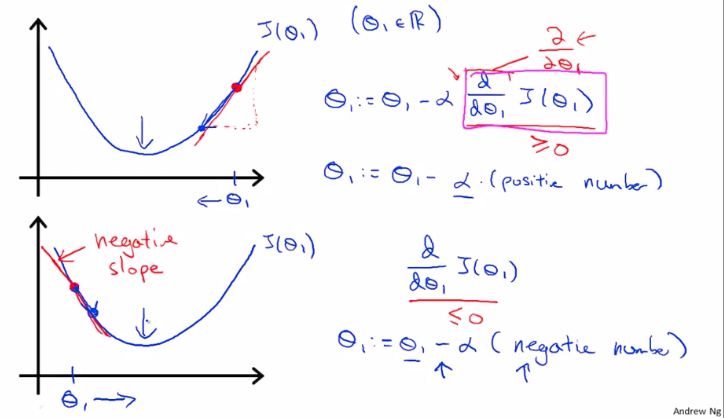 J(θ₁) (θ₁ ∈ ℝ)
∂/∂θ₁ ←
θ₁ := θ₁ - α d/dθ₁ J(θ₁)
≥ 0
θ₁ := θ₁ - α · (positie number)
← θ₁
J(θ₁)
negative
slope
d/dθ₁ J(θ₁)
≤ 0
θ₁ := θ₁ - α (negatie number)
θ₁ →
Andrew Ng